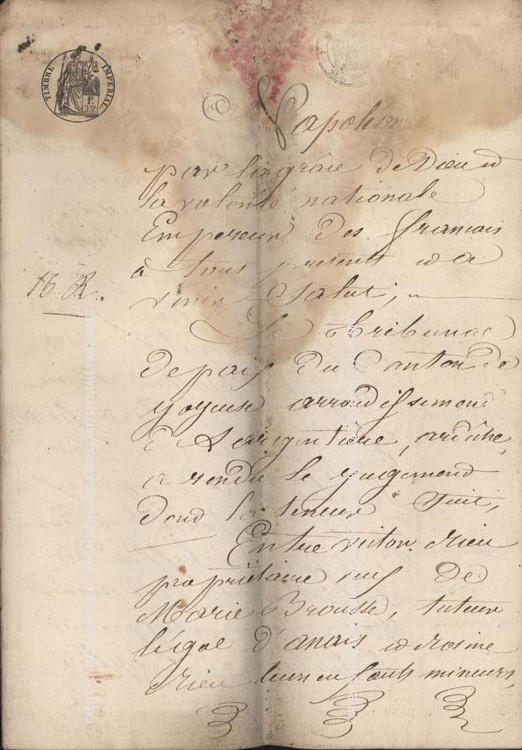 TIMBRE IMPERIAL
Napoleon
par la grâce de Dieu et
la volonté nationale
Empereur des francais
à tous présents et a
16 R.
venir Salut,
Le Tribunal
de paix du Canton de
joyeuse arrondissement
d'Largentière, ardêche,
a rendu le jugement
dont la teneur Suit,
Entre victor Rieu
propriétaire veuf de
Marie Brousse, tuteur
légal d'anais et rosine
Rieu leurs enfants mineurs,